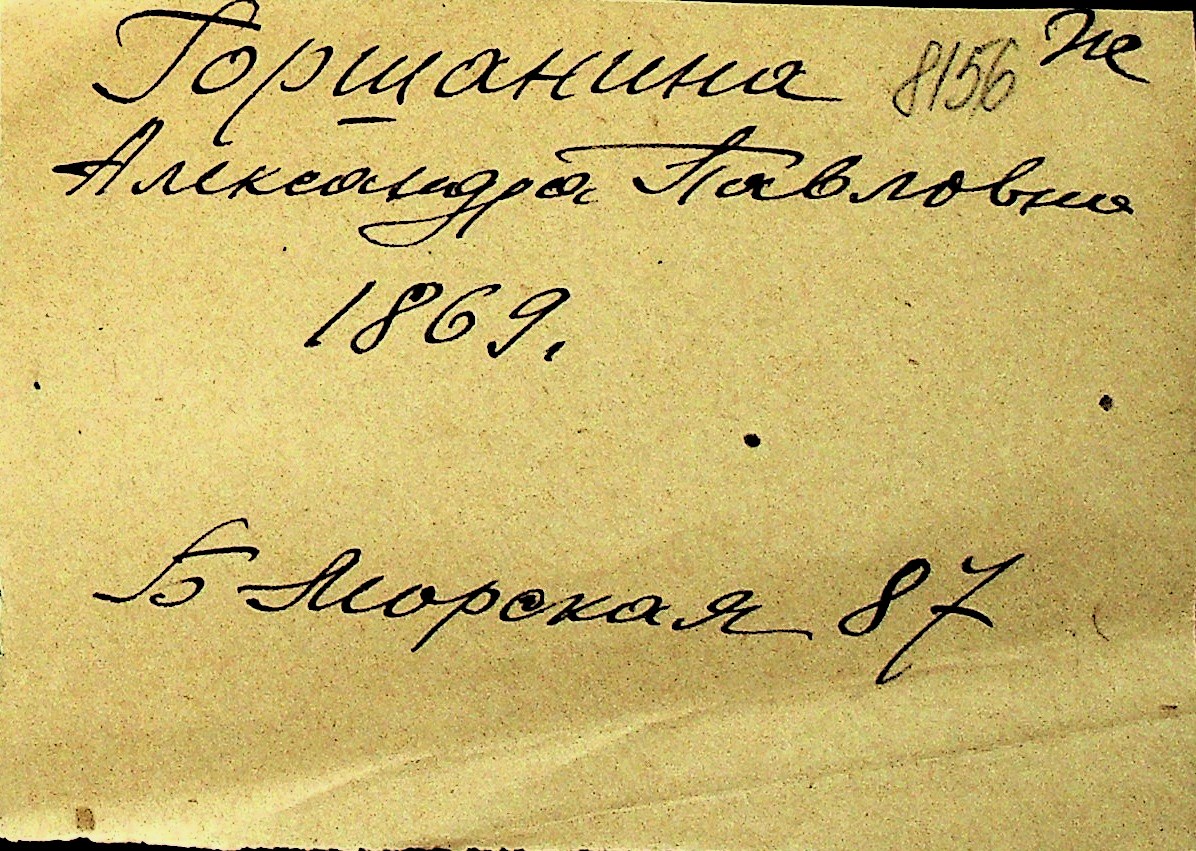 Горшанина 8156 Не
Александра Павловна
1869.
Б Морская 87